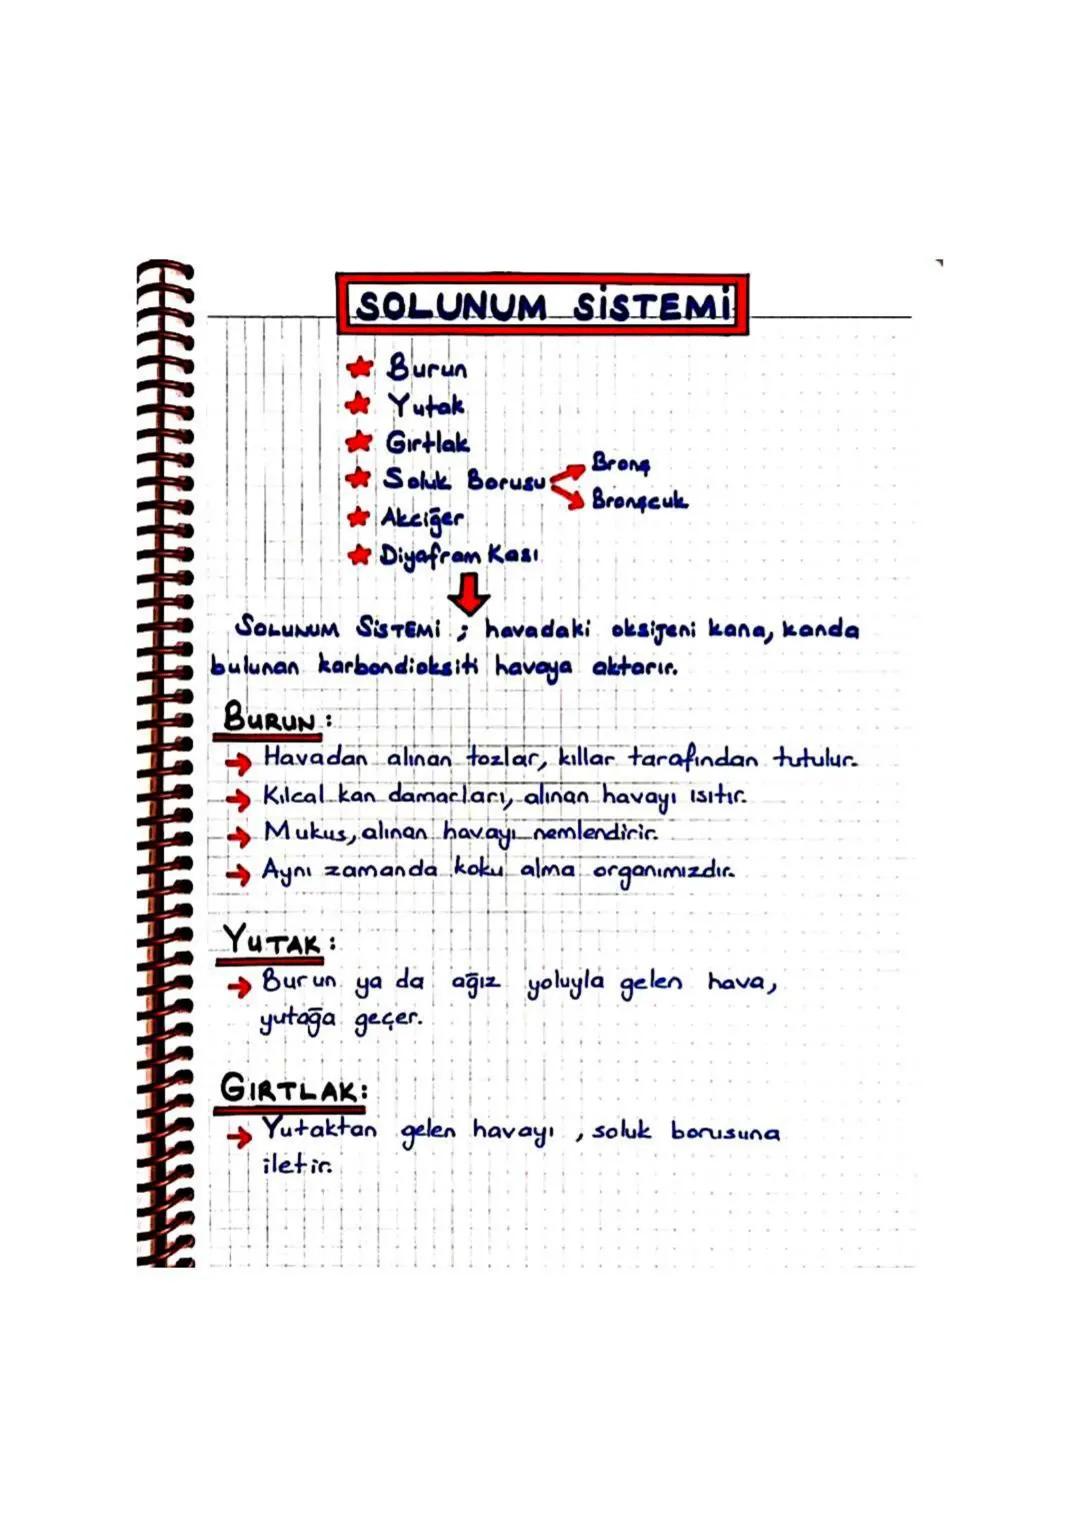 SOLUNUM SİSTEMİ
Burun
Yutak
Gırtlak
Soluk Borusu
Bronş
Bronşcuk
Akciğer
Diyafram Kası
SOLUNUM SİSTEMİ ; havadaki oksijeni kana, kanda
bulunan karbondioksiti havaya aktarır.
BURUN :
Havadan alınan tozlar, kıllar tarafından tutulur.
Kılcal kan damarları, alınan havayı ısıtır.
Mukus, alınan havayı nemlendirir.
Aynı zamanda koku alma organımızdır.
YUTAK :
Burun ya da ağız yoluyla gelen hava,
yutağa geçer.
GIRTLAK:
Yutaktan gelen havayı , soluk borusuna
iletir.